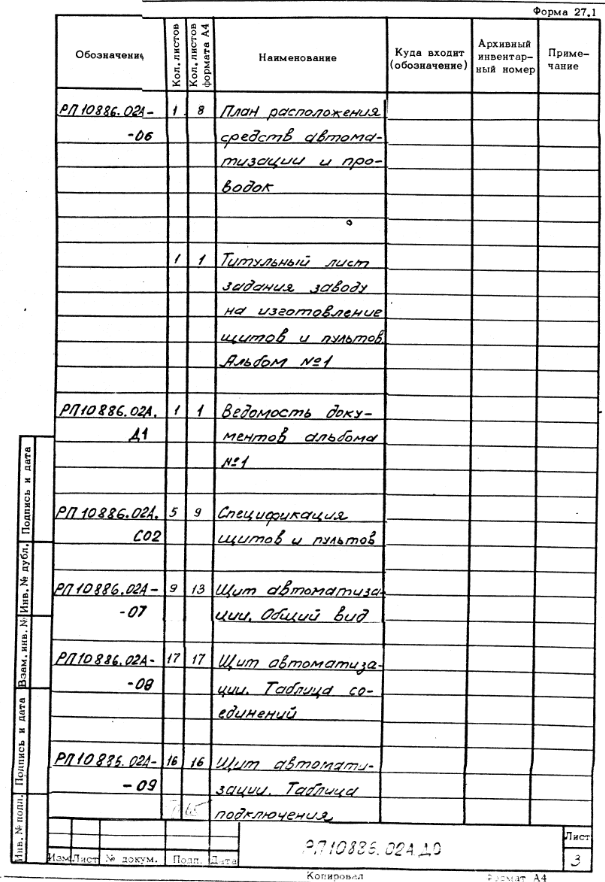 Форма 27.1
Обозначение
Кол. листов
Кол. листов формата А4
Наименование
Куда входит (обозначение)
Архивный инвентар-ный номер
Приме-чание
РП 10886.02А- 1 8 План расположения
-06 средств автома-
тизации и про-
водок
1 1 Титульный лист
задания заводу
на изготовление
щитов и пультов
Альбом №1
РП10886.02А. 1 1 Ведомость доку-
Д1 ментов альбома
№1
РП 10886.02А. 5 9 Спецификация
СО2 щитов и пультов
РП10886.02А- 9 13 Щит автоматиза-
-07 ции. Общий вид
РП10886.02А- 17 17 Щит автоматиза-
-08 ции. Таблица со-
единений
РП10885.02А- 16 16 Щит автомати-
-09 зации. Таблица
65 подключения
Инв. № подл.
Подпись и дата
Взам. инв. №
Инв. № дубл.
Подпись и дата
РП10886.02А ДО
Лист
3
Изм Лист № докум. Подп. Дата
Копировал Формат А4